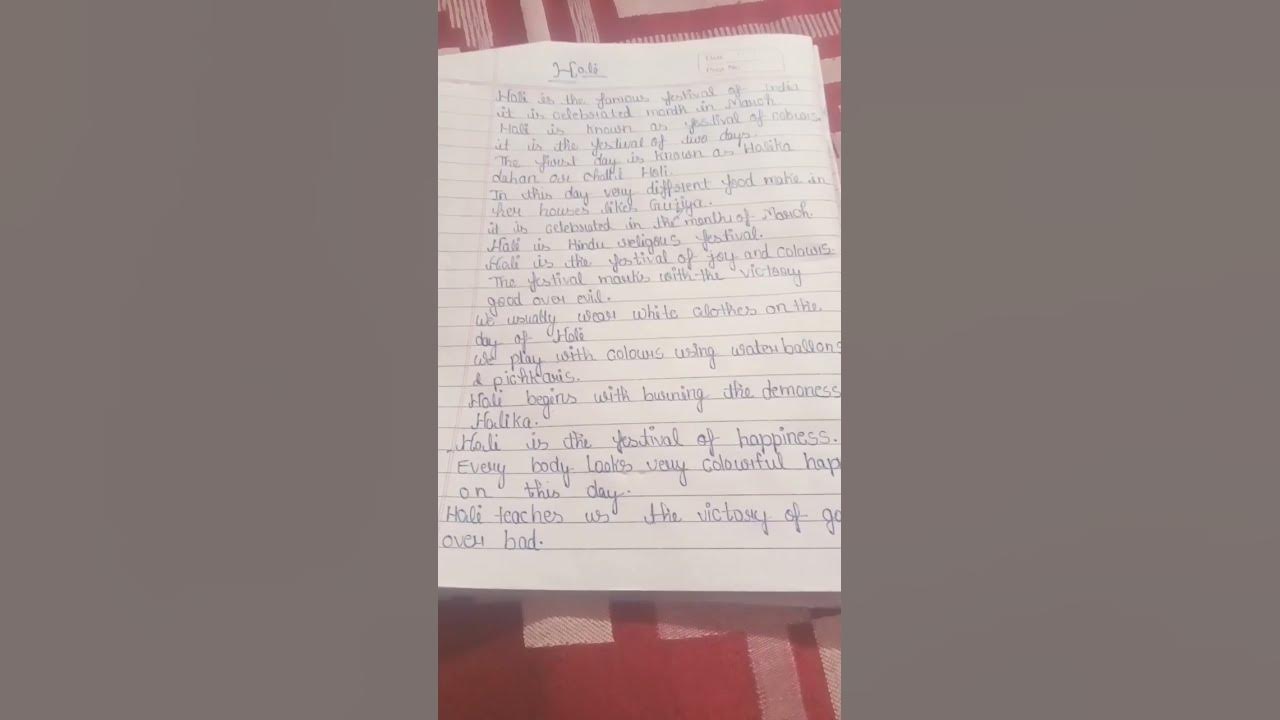 Holi
Date
Page No.
Holi is the famous festival of India
it is celebrated month in March
Holi is known as festival of colours.
it is the festival of two days.
The first day is known as Holika
dahan or Holi.
In this day very different food make in
her houses likes Gujiya.
it is celebrated in the month of March.
Holi is Hindu religous festival.
Holi is the festival of joy and colours.
The festival marks with the victory
good over evil.
we usually wear white clothes on the
day of Holi
we play with colours using water ballons
& pichkaris.
Holi begins with burning the demoness
Holika.
Holi is the festival of happiness.
Every body looks very colourful hap
on this day.
Holi teaches us the victory of go
over bad.